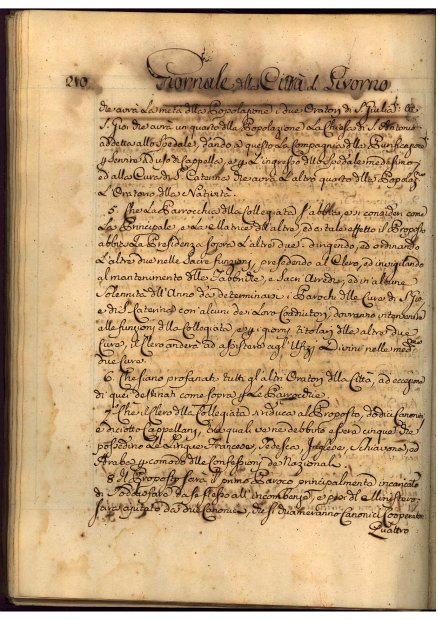 210 Giornale della Città di Livorno
che avrà La metà della Popolazione i due Oratorj di S. Giulia, e di
S. Gio: che avrà un quarto della Popolazione La Chiesa di S. Antonio
addetta allo Spedale, dando a questo La Compagnia della Purificazione
per servire ad uso di Cappella, e per L'ingresso dello Spedale medesimo,
ed alla Cura di S. Caterina che avrà L'altro quarto della Popolazne
L'Oratorio della Natività.
5. Che La Parrocchia della Collegiata s'abbia, e si consideri come
La Principale, e La Matrice dell'altre, ed a tale effetto il Proposto
abbia La Presidenza sopra L'altre due: dirigendo, ed ordinando
L'altre due nelle Sacre funzioni, presedendo al Clero, ed invigilando
al mantenimento delle Fabbriche, e Sacri Arredi, ed in alcune
Solennità dell'Anno da determinarsi i Parochi delle Cure di S. Gio:
e di S. Caterina con alcuni de Loro Coadiutori, dovranno intervenire
alle funzioni della Collegiata, e per i giorni titolari delle altre due
Cure, il Clero anderà ad assistere agl'Ufizj Divini nelle medme
due Cure.
6. Che siano profanati tutti gl'altri Oratorj della Città, ad eccezione
di quei destinati come sopra per Le Parrocchie.
7. Che il Clero della Collegiata si riduca al Proposto, dodici Canonici
e diciotto Cappellani, tra i quali ve ne debbino essere cinque che
possedino Le Lingue Francese, Tedesca, Inglese, Schiavona, ed
Araba per comodo delle Confessioni da Nazionali.
8. Il Proposto sarà il primo Paroco principalmente incaricato
di soddisfare da se stesso all'incombenze, e per del Ministero
sarà ajutato da due Canonici, che si chiameranno Canonici Cooperatori
Quattro